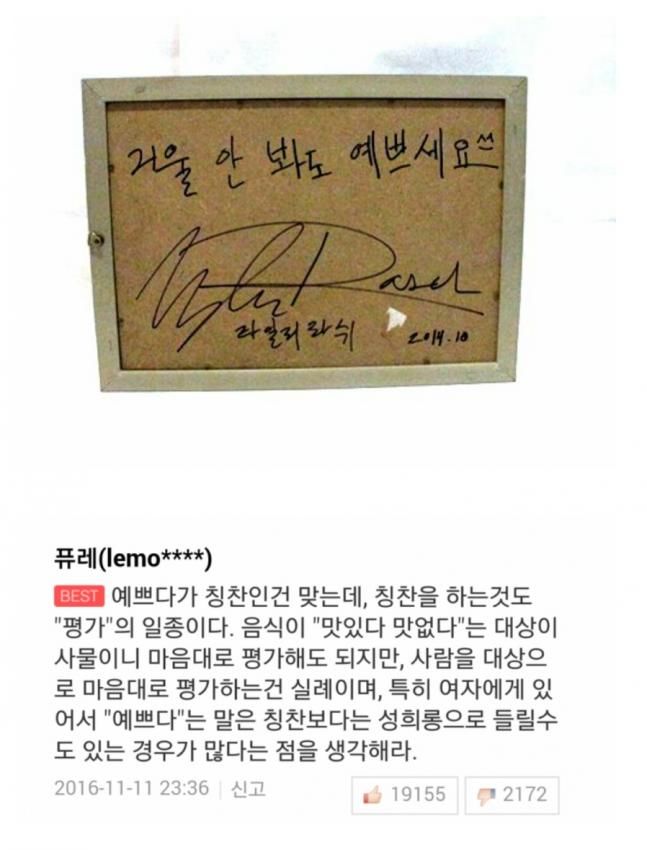 거울 안 봐도 예쁘세요^^
라일리라쉬
2014.10
퓨레(lemo****)
BEST 예쁘다가 칭찬인건 맞는데, 칭찬을 하는것도
"평가"의 일종이다. 음식이 "맛있다 맛없다"는 대상이
사물이니 마음대로 평가해도 되지만, 사람을 대상으
로 마음대로 평가하는건 실례이며, 특히 여자에게 있
어서 "예쁘다"는 말은 칭찬보다는 성희롱으로 들릴수
도 있는 경우가 많다는 점을 생각해라.
2016-11-11 23:36 | 신고
19155 2172